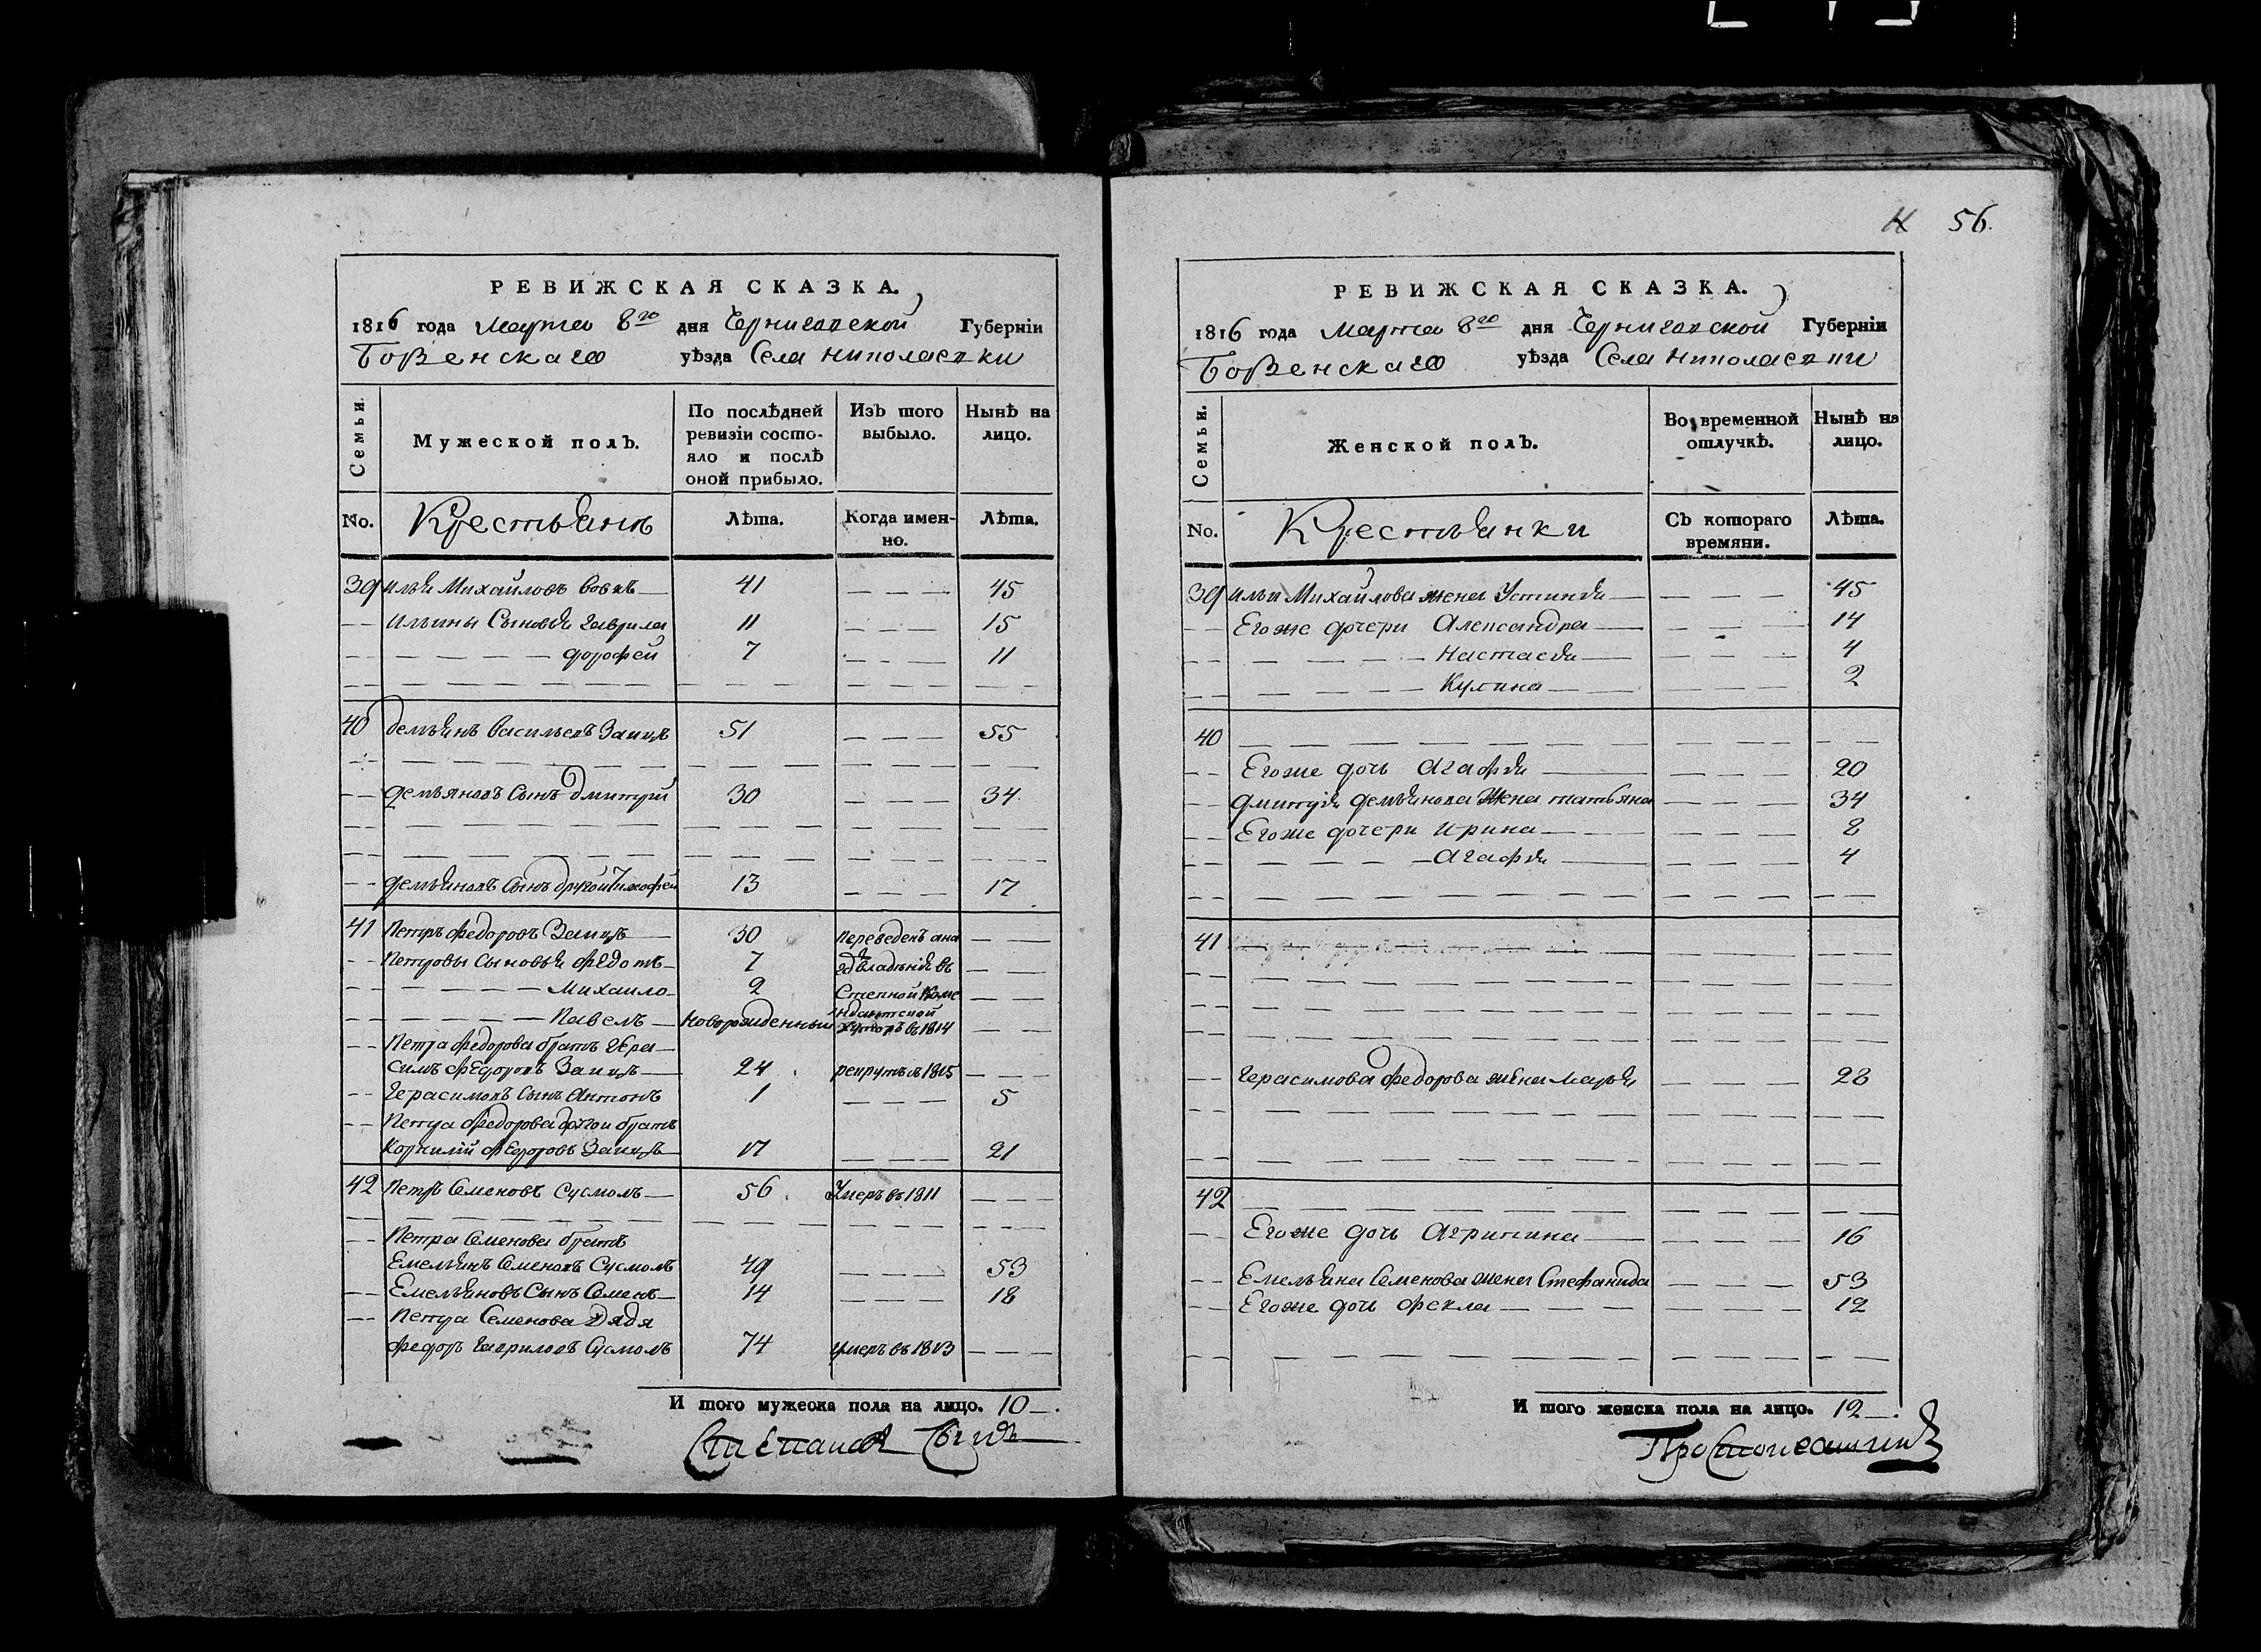 РЕВИЖСКАЯ СКАЗКА.
1816 года Марта 8го дня Черниговской Губерніи
Борзенского уѣзда Села Николаевки
Семьи.
Мужеской полъ.
По послѣдней ревизіи состояло и послѣ оной прибыло.
Изъ того выбыло.
Нынѣ на лицо.
No.
Крестьянъ
Лѣта.
Когда именно.
Лѣта.
39 Илья Михайловъ Вовкъ 41 45
Ильины Сыновья Гаврила 11 15
Дорофей 7 11
40 Демьянъ Васильевъ Заицъ 51 55
Демьяновъ Сынъ Дмитрій 30 34
Демьяновъ Сынъ другой Тимофей 13 17
41 Петръ Федоровъ Заицъ 30 Переведенъ
Петровы Сыновья Федотъ 7 владѣнія въ
Михайло 2 Степной Коме
Павелъ новорожденный ндантской хуторъ въ 1814
Петра Федорова братъ Гера
симъ Федоровъ Заицъ 24 рекрутъ въ 1815
Герасимовъ Сынъ Антонъ 1 5
Петра Федорова другои братъ
Корнилій Федоровъ Заицъ 17 21
42 Петръ Семеновъ Сусмолъ 56 Умеръ въ 1811
Петра Семенова братъ
Емельянъ Семеновъ Сусмолъ 49 53
Емельяновъ Сынъ Семенъ 14 18
Петра Семенова дядя
Федоръ Гавриловъ Сусмолъ 74 умеръ въ 1813
И того мужеска пола на лицо. 10
56.
РЕВИЖСКАЯ СКАЗКА.
1816 года Марта 8го дня Черниговской Губерніи
Борзенского уѣзда Села Николаевки
Семьи.
Женской полъ.
Во временной отлучкѣ.
Нынѣ на лицо.
No.
Крестьянки
Съ котораго времяни.
Лѣта.
39 Ильи Михайлова жена Устинья 45
Егоже дочери Александра 14
Настасья 4
Кулина 2
40
Егоже дочь Агафья 20
Дмитрія Демьянова Жена татьяна 34
Егоже дочери Ирина 8
Агафья 4
41
Герасимова Федорова жена Марья 28
42
Егоже дочь Агрипина 16
Емельяна Семенова жена Стефанида 53
Егоже дочь Фекла 12
И того женска пола на лицо. 12